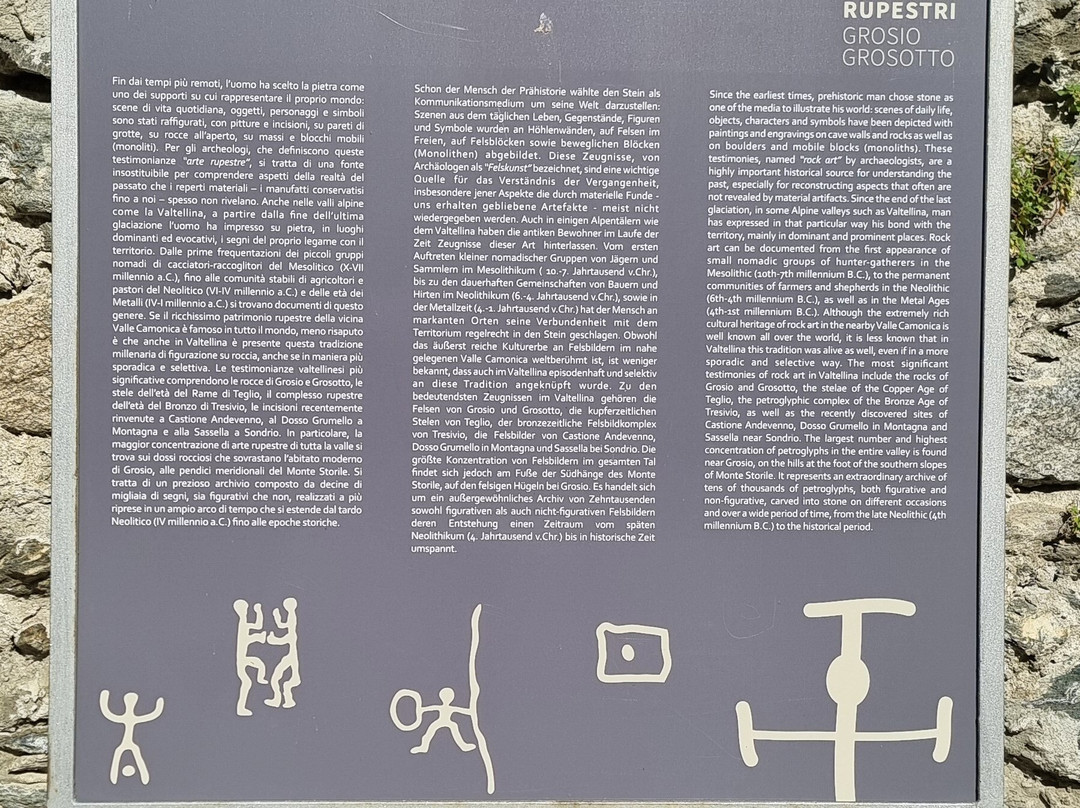 RUPESTRI
GROSIO
GROSOTTO
Fin dai tempi più remoti, l'uomo ha scelto la pietra come
uno dei supporti su cui rappresentare il proprio mondo:
scene di vita quotidiana, oggetti, personaggi e simboli
sono stati raffigurati, con pitture e incisioni, su pareti di
grotte, su rocce all'aperto, su massi e blocchi mobili
(monoliti). Per gli archeologi, che definiscono queste
testimonianze "arte rupestre", si tratta di una fonte
insostituibile per comprendere aspetti della realtà del
passato che i reperti materiali – i manufatti conservatisi
fino a noi – spesso non rivelano. Anche nelle valli alpine
come la Valtellina, a partire dalla fine dell'ultima
glaciazione l'uomo ha impresso su pietra, in luoghi
dominanti ed evocativi, i segni del proprio legame con il
territorio. Dalle prime frequentazioni dei piccoli gruppi
nomadi di cacciatori-raccoglitori del Mesolitico (X-VII
millennio a.C.), fino alle comunità stabili di agricoltori e
pastori del Neolitico (VI-IV millennio a.C.) e delle età dei
Metalli (IV-I millennio a.C.) si trovano documenti di questo
genere. Se il ricchissimo patrimonio rupestre della vicina
Valle Camonica è famoso in tutto il mondo, meno risaputo
è che anche in Valtellina è presente questa tradizione
millenaria di figurazione su roccia, anche se in maniera più
sporadica e selettiva. Le testimonianze valtellinesi più
significative comprendono le rocce di Grosio e Grosotto, le
stele dell'età del Rame di Teglio, il complesso rupestre
dell'età del Bronzo di Tresivio, le incisioni recentemente
rinvenute a Castione Andevenno, al Dosso Grumello a
Montagna e alla Sassella a Sondrio. In particolare, la
maggior concentrazione di arte rupestre di tutta la valle si
trova sui dossi rocciosi che sovrastano l'abitato moderno
di Grosio, alle pendici meridionali del Monte Storile. Si
tratta di un prezioso archivio composto da decine di
migliaia di segni, sia figurativi che non, realizzati a più
riprese in un ampio arco di tempo che si estende dal tardo
Neolitico (IV millennio a.C.) fino alle epoche storiche.
Schon der Mensch der Prähistorie wählte den Stein als
Kommunikationsmedium um seine Welt darzustellen:
Szenen aus dem täglichen Leben, Gegenstände, Figuren
und Symbole wurden an Höhlenwänden, auf Felsen im
Freien, auf Felsblöcken sowie beweglichen Blöcken
(Monolithen) abgebildet. Diese Zeugnisse, von
Archäologen als "Felskunst" bezeichnet, sind eine wichtige
Quelle für das Verständnis der Vergangenheit,
insbesondere jener Aspekte die durch materielle Funde -
uns erhalten gebliebene Artefakte - meist nicht
wiedergegeben werden. Auch in einigen Alpentälern wie
dem Valtellina haben die antiken Bewohner im Laufe der
Zeit Zeugnisse dieser Art hinterlassen. Vom ersten
Auftreten kleiner nomadischer Gruppen von Jägern und
Sammlern im Mesolithikum ( 10.-7. Jahrtausend v.Chr.),
bis zu den dauerhaften Gemeinschaften von Bauern und
Hirten im Neolithikum (6.-4. Jahrtausend v.Chr.), sowie in
der Metallzeit (4.-1. Jahrtausend v.Chr.) hat der Mensch an
markanten Orten seine Verbundenheit mit dem
Territorium regelrecht in den Stein geschlagen. Obwohl
das äußerst reiche Kulturerbe an Felsbildern im nahe
gelegenen Valle Camonica weltberühmt ist, ist weniger
bekannt, dass auch im Valtellina episodenhaft und selektiv
an diese Tradition angeknüpft wurde. Zu den
bedeutendsten Zeugnissen im Valtellina gehören die
Felsen von Grosio und Grosotto, die kupferzeitlichen
Stelen von Teglio, der bronzezeitliche Felsbildkomplex
von Tresivio, die Felsbilder von Castione Andevenno,
Dosso Grumello in Montagna und Sassella bei Sondrio. Die
größte Konzentration von Felsbildern im gesamten Tal
findet sich jedoch am Fuße der Südhänge des Monte
Storile, auf den felsigen Hügeln bei Grosio. Es handelt sich
um ein außergewöhnliches Archiv von Zehntausenden
sowohl figurativen als auch nicht-figurativen Felsbildern
deren Entstehung einen Zeitraum vom späten
Neolithikum (4. Jahrtausend v.Chr.) bis in historische Zeit
umspannt.
Since the earliest times, prehistoric man chose stone as
one of the media to illustrate his world: scenes of daily life,
objects, characters and symbols have been depicted with
paintings and engravings on cave walls and rocks as well as
on boulders and mobile blocks (monoliths). These
testimonies, named "rock art" by archaeologists, are a
highly important historical source for understanding the
past, especially for reconstructing aspects that often are
not revealed by material artifacts. Since the end of the last
glaciation, in some Alpine valleys such as Valtellina, man
has expressed in that particular way his bond with the
territory, mainly in dominant and prominent places. Rock
art can be documented from the first appearance of
small nomadic groups of hunter-gatherers in the
Mesolithic (10th-7th millennium B.C.), to the permanent
communities of farmers and shepherds in the Neolithic
(6th-4th millennium B.C.), as well as in the Metal Ages
(4th-1st millennium B.C.). Although the extremely rich
cultural heritage of rock art in the nearby Valle Camonica is
well known all over the world, it is less known that in
Valtellina this tradition was alive as well, even if in a more
sporadic and selective way. The most significant
testimonies of rock art in Valtellina include the rocks of
Grosio and Grosotto, the stelae of the Copper Age of
Teglio, the petroglyphic complex of the Bronze Age of
Tresivio, as well as the recently discovered sites of
Castione Andevenno, Dosso Grumello in Montagna and
Sassella near Sondrio. The largest number and highest
concentration of petroglyphs in the entire valley is found
near Grosio, on the hills at the foot of the southern slopes
of Monte Storile. It represents an extraordinary archive of
tens of thousands of petroglyphs, both figurative and
non-figurative, carved into stone on different occasions
and over a wide period of time, from the late Neolithic (4th
millennium B.C.) to the historical period.